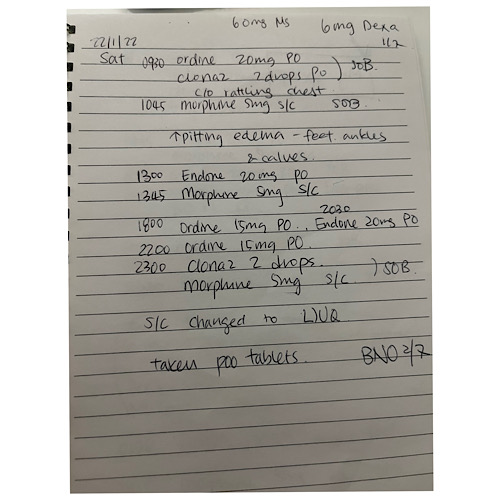 60mg MS 6mg Dexa
22/1/22 1/7
Sat 0930 ordine 20mg PO
clonaz 2 drops PO ) SOB.
c/o rattling chest.
1045 morphine 5mg s/c SOB.
↑pitting edema - feet. ankles
& calves.
1300 Endone 20mg PO
1345 Morphine 5mg S/C
1800 ordine 15mg PO., 2030 Endone 20mg PO
2200 ordine 15mg PO.
2300 clonaz 2 drops.
morphine 5mg s/c. ) SOB.
S/C changed to L)UQ
taken poo tablets. BNO 2/7